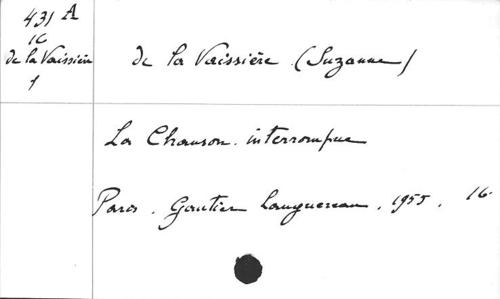 431 A
16
de la Vaissière
1
de la Vaissière (Suzanne)
La Chanson interrompue
Paris. Gautier Languereau. 1955. 16